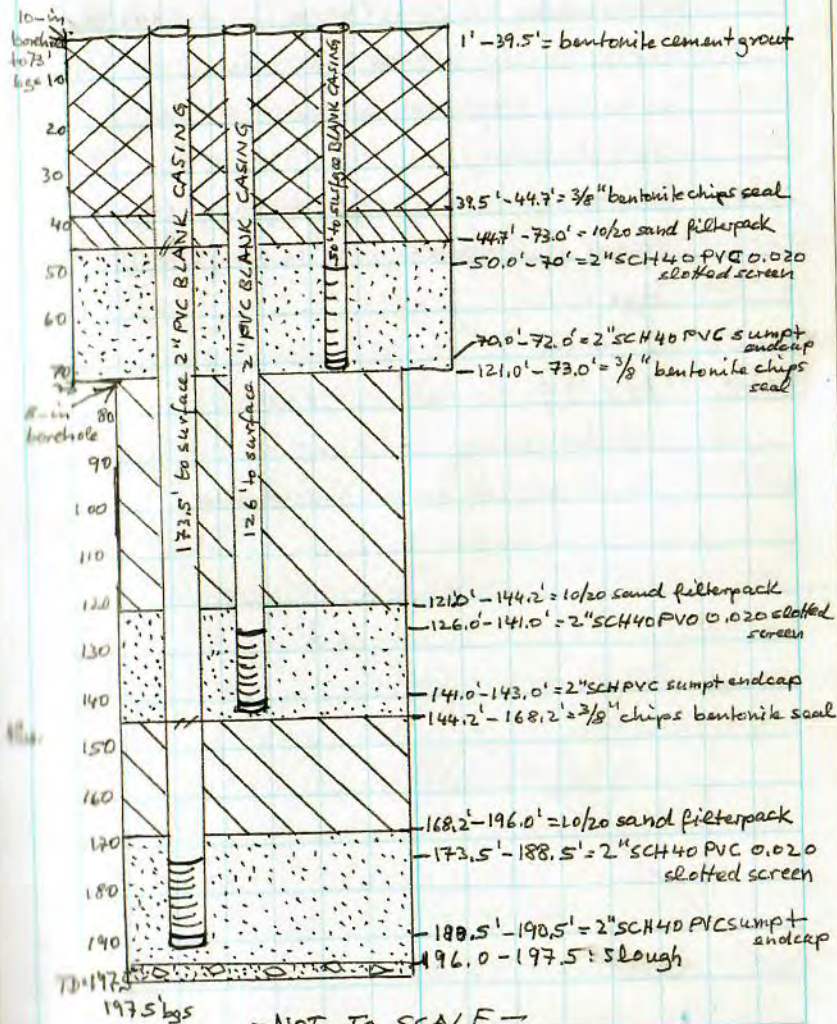 10-in
borehole
to 73'
bgs
10
20
30
40
50
60
70
73
8-in
borehole
80
90
100
110
120
130
140
150
160
170
180
190
TD=197.5
197.5' bgs
173.5' to surface 2" PVC BLANK CASING
126' to surface 2" PVC BLANK CASING
50' to surface BLANK CASING
1' - 39.5' = bentonite cement grout
39.5' - 44.7' = 3/8" bentonite chips seal
44.7' - 73.0' = 10/20 sand filterpack
50.0' - 70' = 2" SCH40 PVC 0.020
slotted screen
70.0' - 72.0' = 2" SCH40 PVC sump +
endcap
121.0' - 73.0' = 3/8" bentonite chips
seal
121.0' - 144.2' = 10/20 sand filterpack
126.0' - 141.0' = 2" SCH40 PVC 0.020 slotted
screen
141.0' - 143.0' = 2" SCH PVC sump + endcap
144.2' - 168.2' = 3/8" chips bentonite seal
168.2' - 196.0' = 10/20 sand filterpack
173.5' - 188.5' = 2" SCH40 PVC 0.020
slotted screen
188.5' - 190.5' = 2" SCH40 PVC sump +
endcap
196.0 - 197.5 : Slough
- NOT TO SCALE -